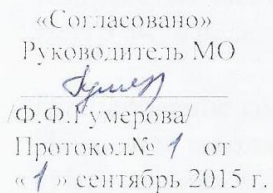 «Согласовано»
Руководитель МО
/Ф.Ф.Гумерова/
Протокол№ 1 от
«1» сентябрь 2015 г.